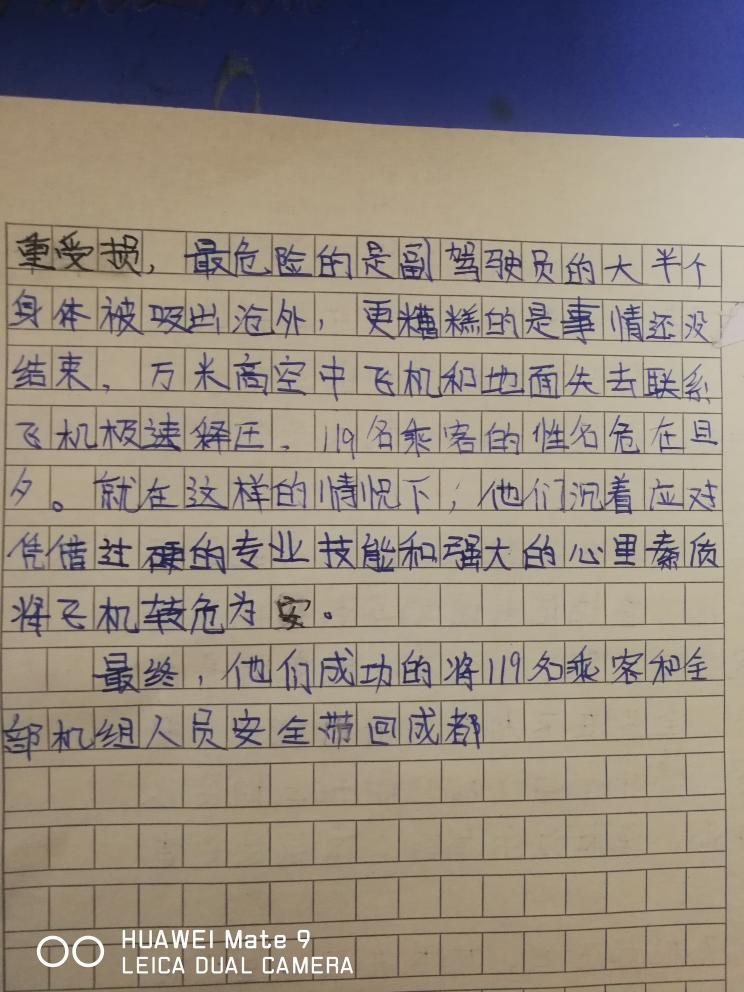 重受损，最危险的是副驾驶员的大半个
身体被吸出沧外，更糟糕的是事情还没
结束，万米高空中飞机和地面失去联系
飞机极速释压，119名乘客的性名危在旦
夕。就在这样的情况下，他们沉着应对
凭借过硬的专业技能和强大的心里素质
将飞机转危为安。
最终，他们成功的将119名乘客和全
部机组人员安全带回成都
HUAWEI Mate 9
LEICA DUAL CAMERA